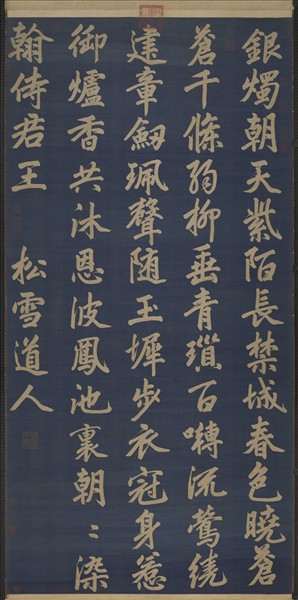 銀燭朝天紫陌長禁城春色曉蒼
蒼千條弱柳垂青瑣百囀流鶯繞
建章釼珮聲随玉墀步衣冠身惹
御爐香共沐恩波鳳池裏朝〻染
翰侍君王 松雪道人